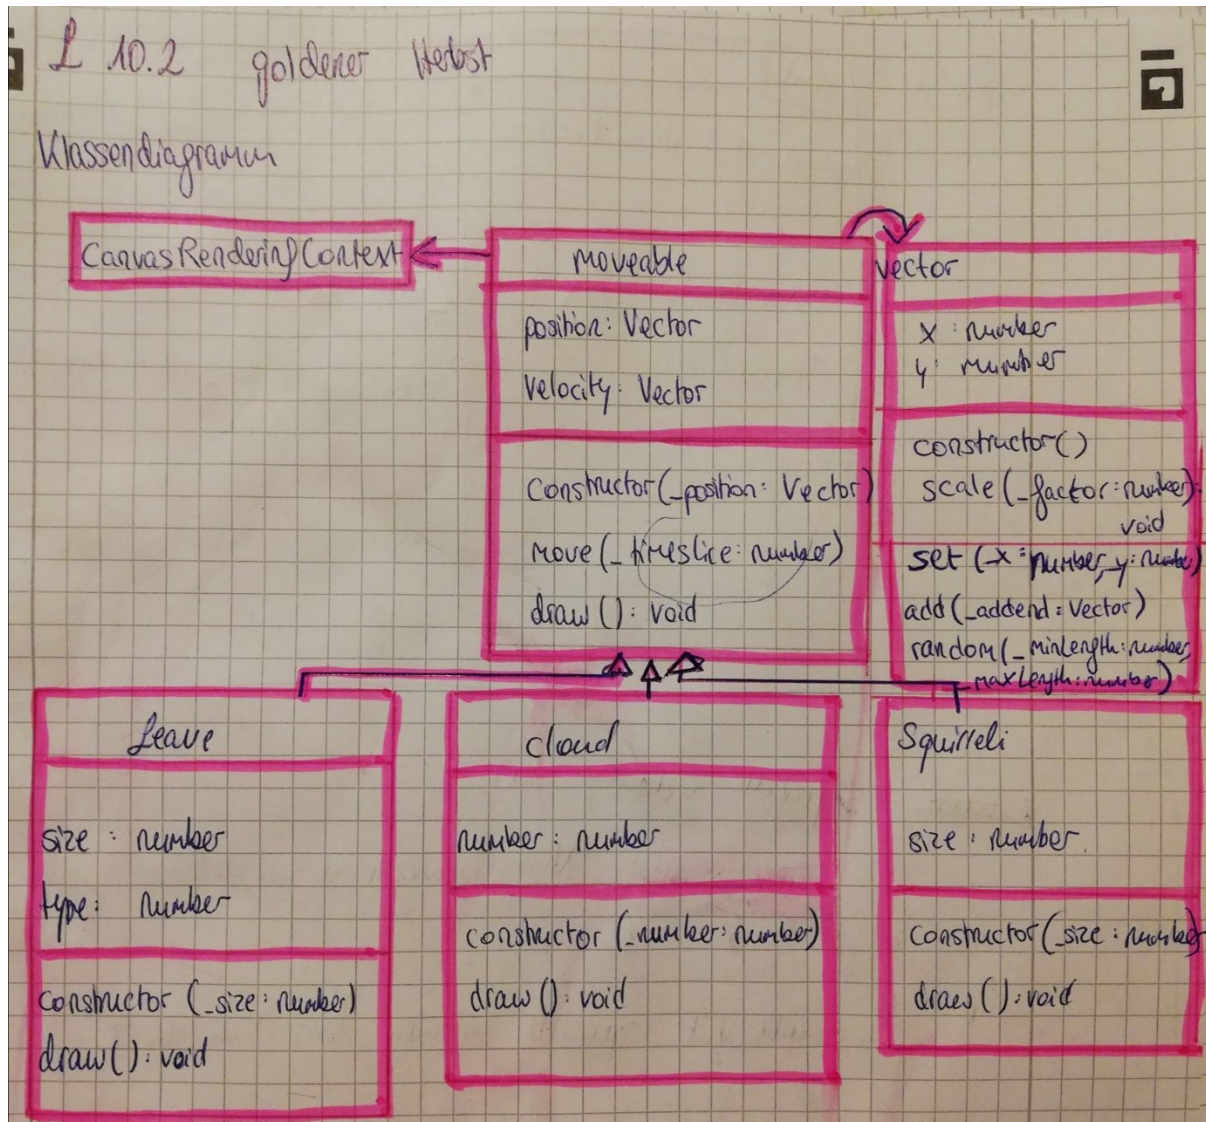 L 10.2 goldener Herbst
Klassendiagramm
CanvasRenderingContext
Moveable
position: Vector
velocity: Vector
constructor(_position: Vector)
move(_timeslice: number)
draw(): void
Vector
x: number
y: number
constructor()
scale(_factor: number):
void
set(_x: number, _y: number)
add(_addend: Vector)
random(_minLength: number,
_maxLength: number)
Leave
size: number
type: number
constructor(_size: number)
draw(): void
Cloud
number: number
constructor(_number: number)
draw(): void
Squirreli
size: number
constructor(_size: number)
draw(): void